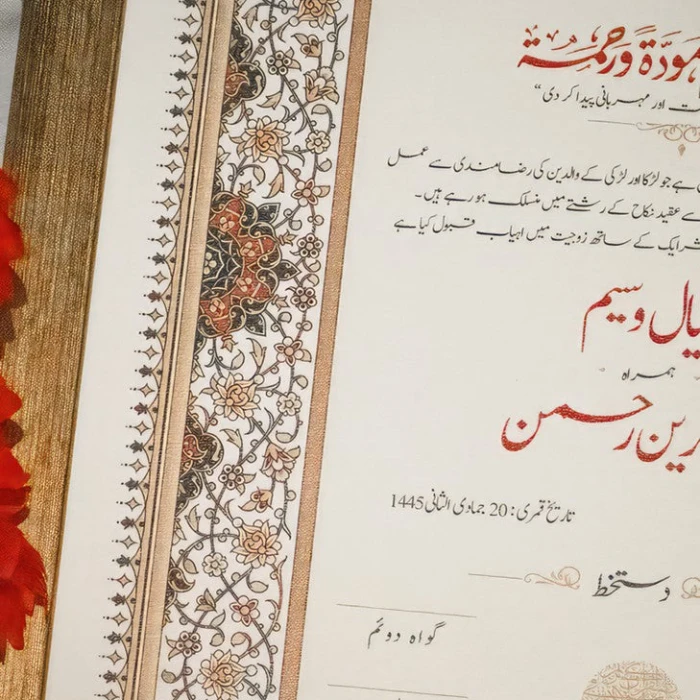 مَوَدَّةً وَرَحْمَةً
اور مہربانی پیدا کر دی“
ہے جو لڑکا اور لڑکی کے والدین کی رضامندی سے عمل
سے عقیدِ نکاح کے رشتے میں منسلک ہو رہے ہیں۔
ایک کے ساتھ زوجیت میں ایہاب قبول کیا ہے
وسیم
ہمراہ
رحمن
تاریخ قمری: 20 جمادی الثانی 1445
دستخط
گواہ دوئم